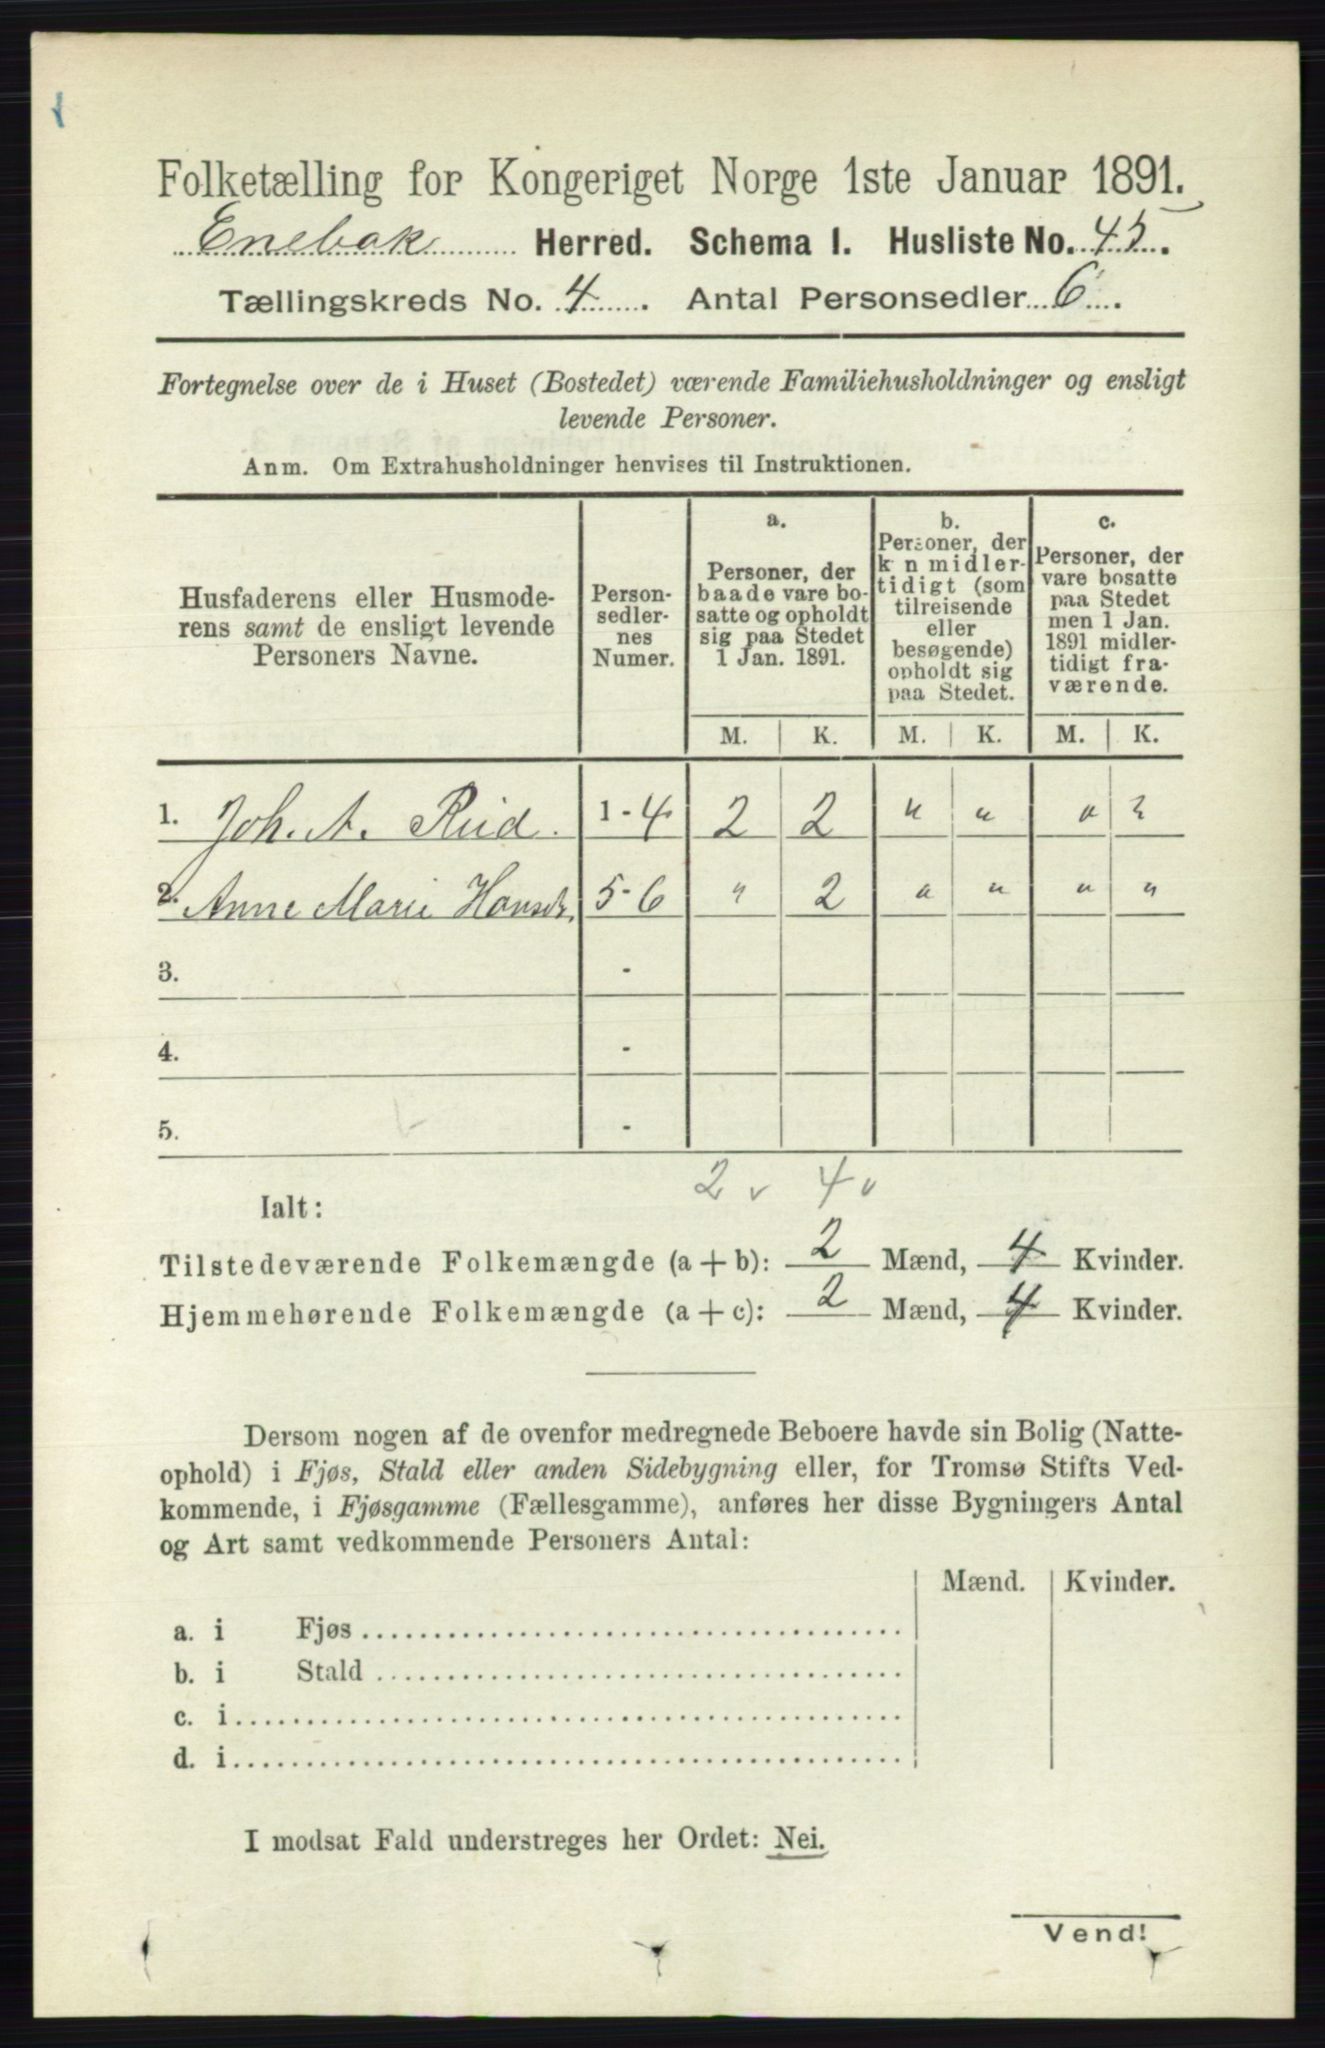 Folketælling for Kongeriget Norge 1ste Januar 1891.
Enebak Herred. Schema I. Husliste No. 45.
Tællingskreds No. 4. Antal Personsedler 6.
Fortegnelse over de i Huset (Bostedet) værende Familiehusholdninger og ensligt
levende Personer.
Anm. Om Extrahusholdninger henvises til Instruktionen.
Husfaderens eller Husmode-
rens samt de ensligt levende
Personers Navne.
Person-
sedler-
nes
Numer.
a.
Personer, der
baade vare bo-
satte og opholdt
sig paa Stedet
1 Jan. 1891.
b.
Personer, der
k n midler-
tidigt (som
tilreisende
eller
besøgende)
opholdt sig
paa Stedet.
c.
Personer, der
vare bosatte
paa Stedet
men 1 Jan.
1891 midler-
tidigt fra-
værende.
M. K. M. K. M. K.
1. Joh. A. Riid. 1-4 2 2 " " " "
2. Anne Marie Hansdr. 5-6 " 2 " " " "
3. -
4. -
5. -
2 v 4 v
Ialt:
Tilstedeværende Folkemængde (a + b): 2 Mænd, 4 Kvinder.
Hjemmehørende Folkemængde (a + c): 2 Mænd, 4 Kvinder.
Dersom nogen af de ovenfor medregnede Beboere havde sin Bolig (Natte-
ophold) i Fjøs, Stald eller anden Sidebygning eller, for Tromsø Stifts Ved-
kommende, i Fjøsgamme (Fællesgamme), anføres her disse Bygningers Antal
og Art samt vedkommende Personers Antal:
Mænd. Kvinder.
a. i Fjøs
b. i Stald
c. i
d. i
I modsat Fald understreges her Ordet: Nei.
Vend!